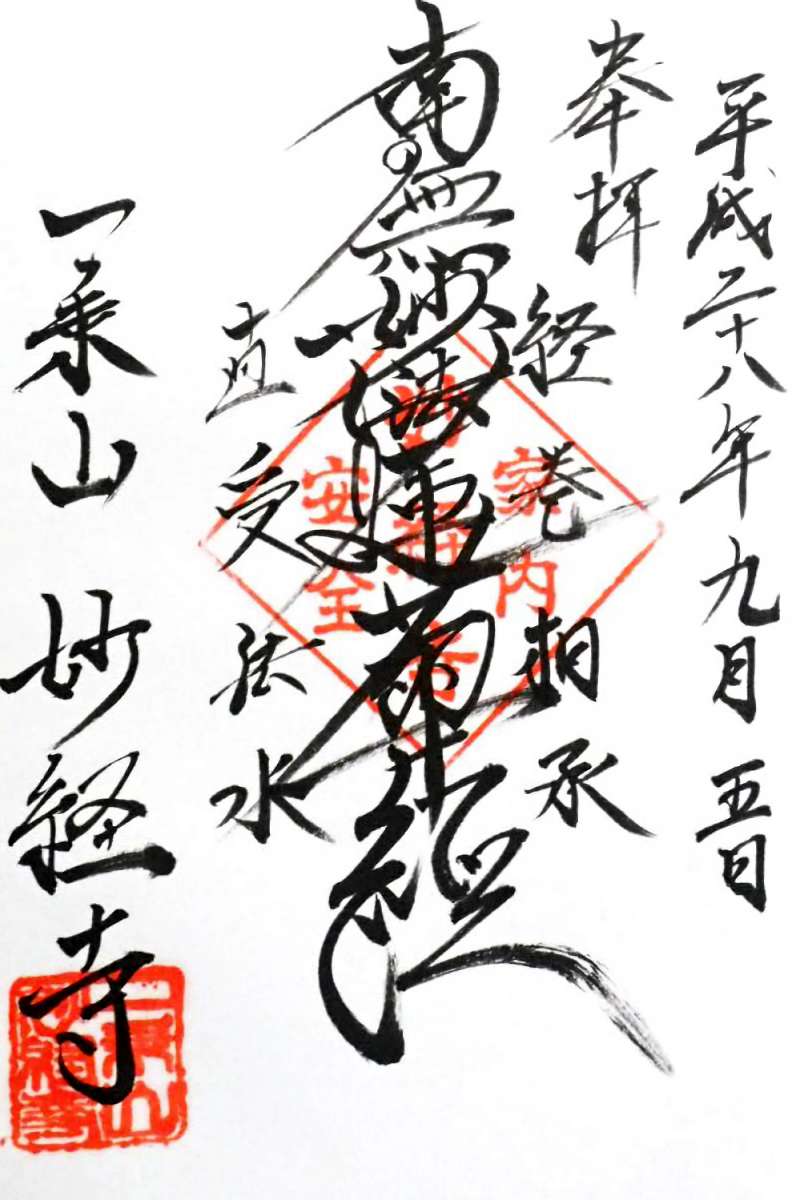 平成二十八年九月五日
奉拝
経巻相承
南無妙法蓮華経
直受法水
家内
安全
一乗山 妙経寺